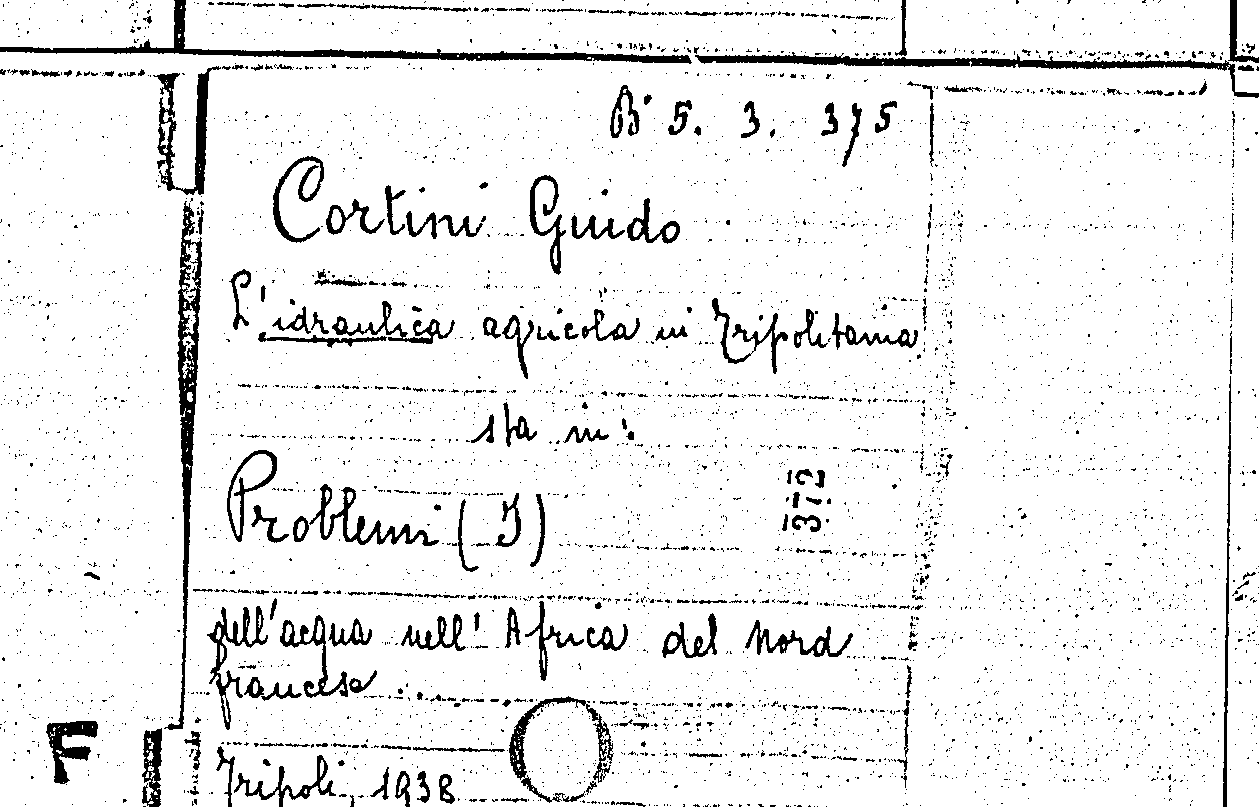 B 5. 3. 375
Cortini Guido
L'idraulica agricola in Tripolitania
sta in:
Problemi (I)
372
dell'acqua nell'Africa del Nord
francese ...
Tripoli, 1938
F